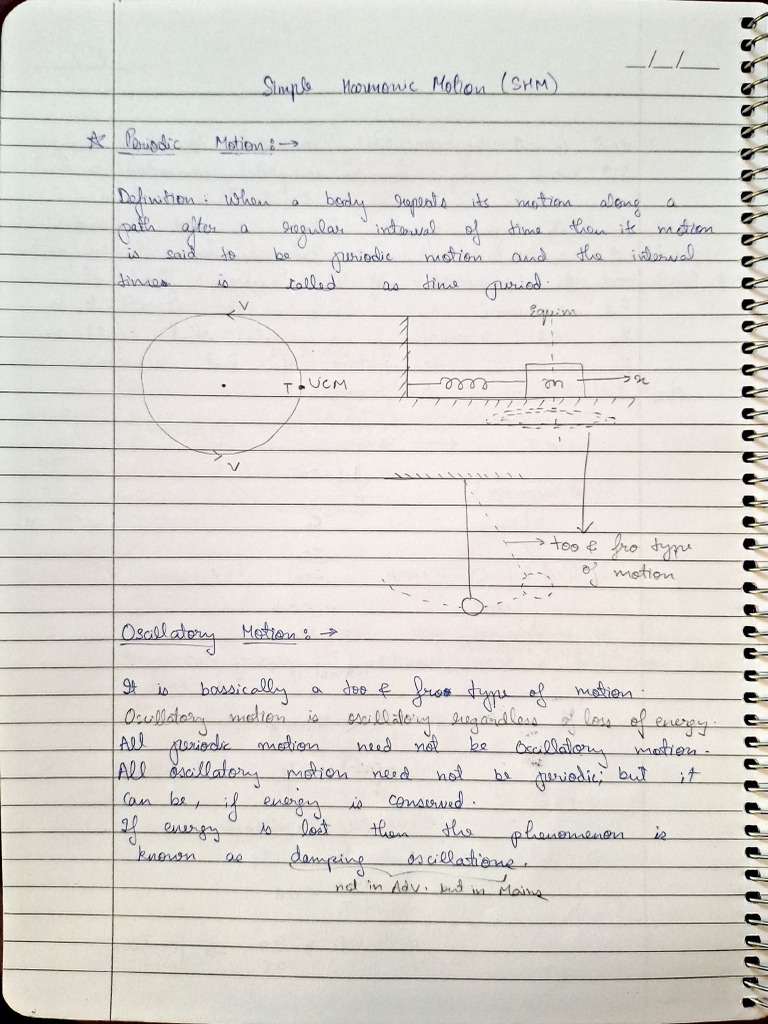 _/_/__
Simple Harmonic Motion (SHM)
☆ Periodic Motion:→
Definition: When a body repeats its motion along a
path after a regular interval of time then its motion
is said to be periodic motion and the interval
times is called as time period.
V
Equim
T UCM
m
x
V
too & fro type
of motion
Oscillatory Motion:→
It is bassically a too & fro type of motion.
Oscillatory motion is oscillatory regardless of loss of energy.
All periodic motion need not be Oscillatory motion.
All oscillatory motion need not be periodic; but it
can be, if energy is conserved.
If energy is lost then the phenomenon is
known as damping oscillations.
not in Adv. but in Mains